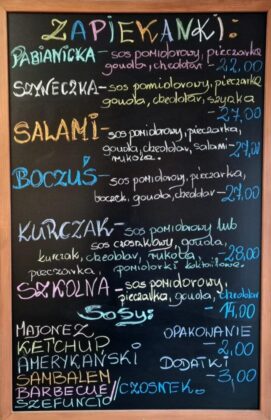 ZAPIEKANKI:
PABIANICKA - sos pomidorowy, pieczarka
gouda, cheddar - 22,00
SZYNECZKA - sos pomidorowy, pieczarka
gouda, cheddar, szynka
- 27,00
SALAMI - sos pomidorowy, pieczarka,
gouda, cheddar, salami
rukola. - 27,00
BOCZUŚ - sos pomidorowy, pieczarka,
boczek, gouda, cheddar - 27,00
KURCZAK - sos pomidorowy lub
sos czosnkowy, gouda,
kurczak, cheddar, rukola - 28,00
pieczarka, pomidorki koktailowe.
SZKOLNA - sos pomidorowy,
pieczarka, gouda, cheddar
- 14,00
SoSy:
MAJONEZ
KETCHUP
AMERYKAŃSKI
SAMBALEM
BARBECUE // CZOSNEK.
SZEFUNCIO
OPAKOWANIE
- 2,00
DODATKI
- 3,00